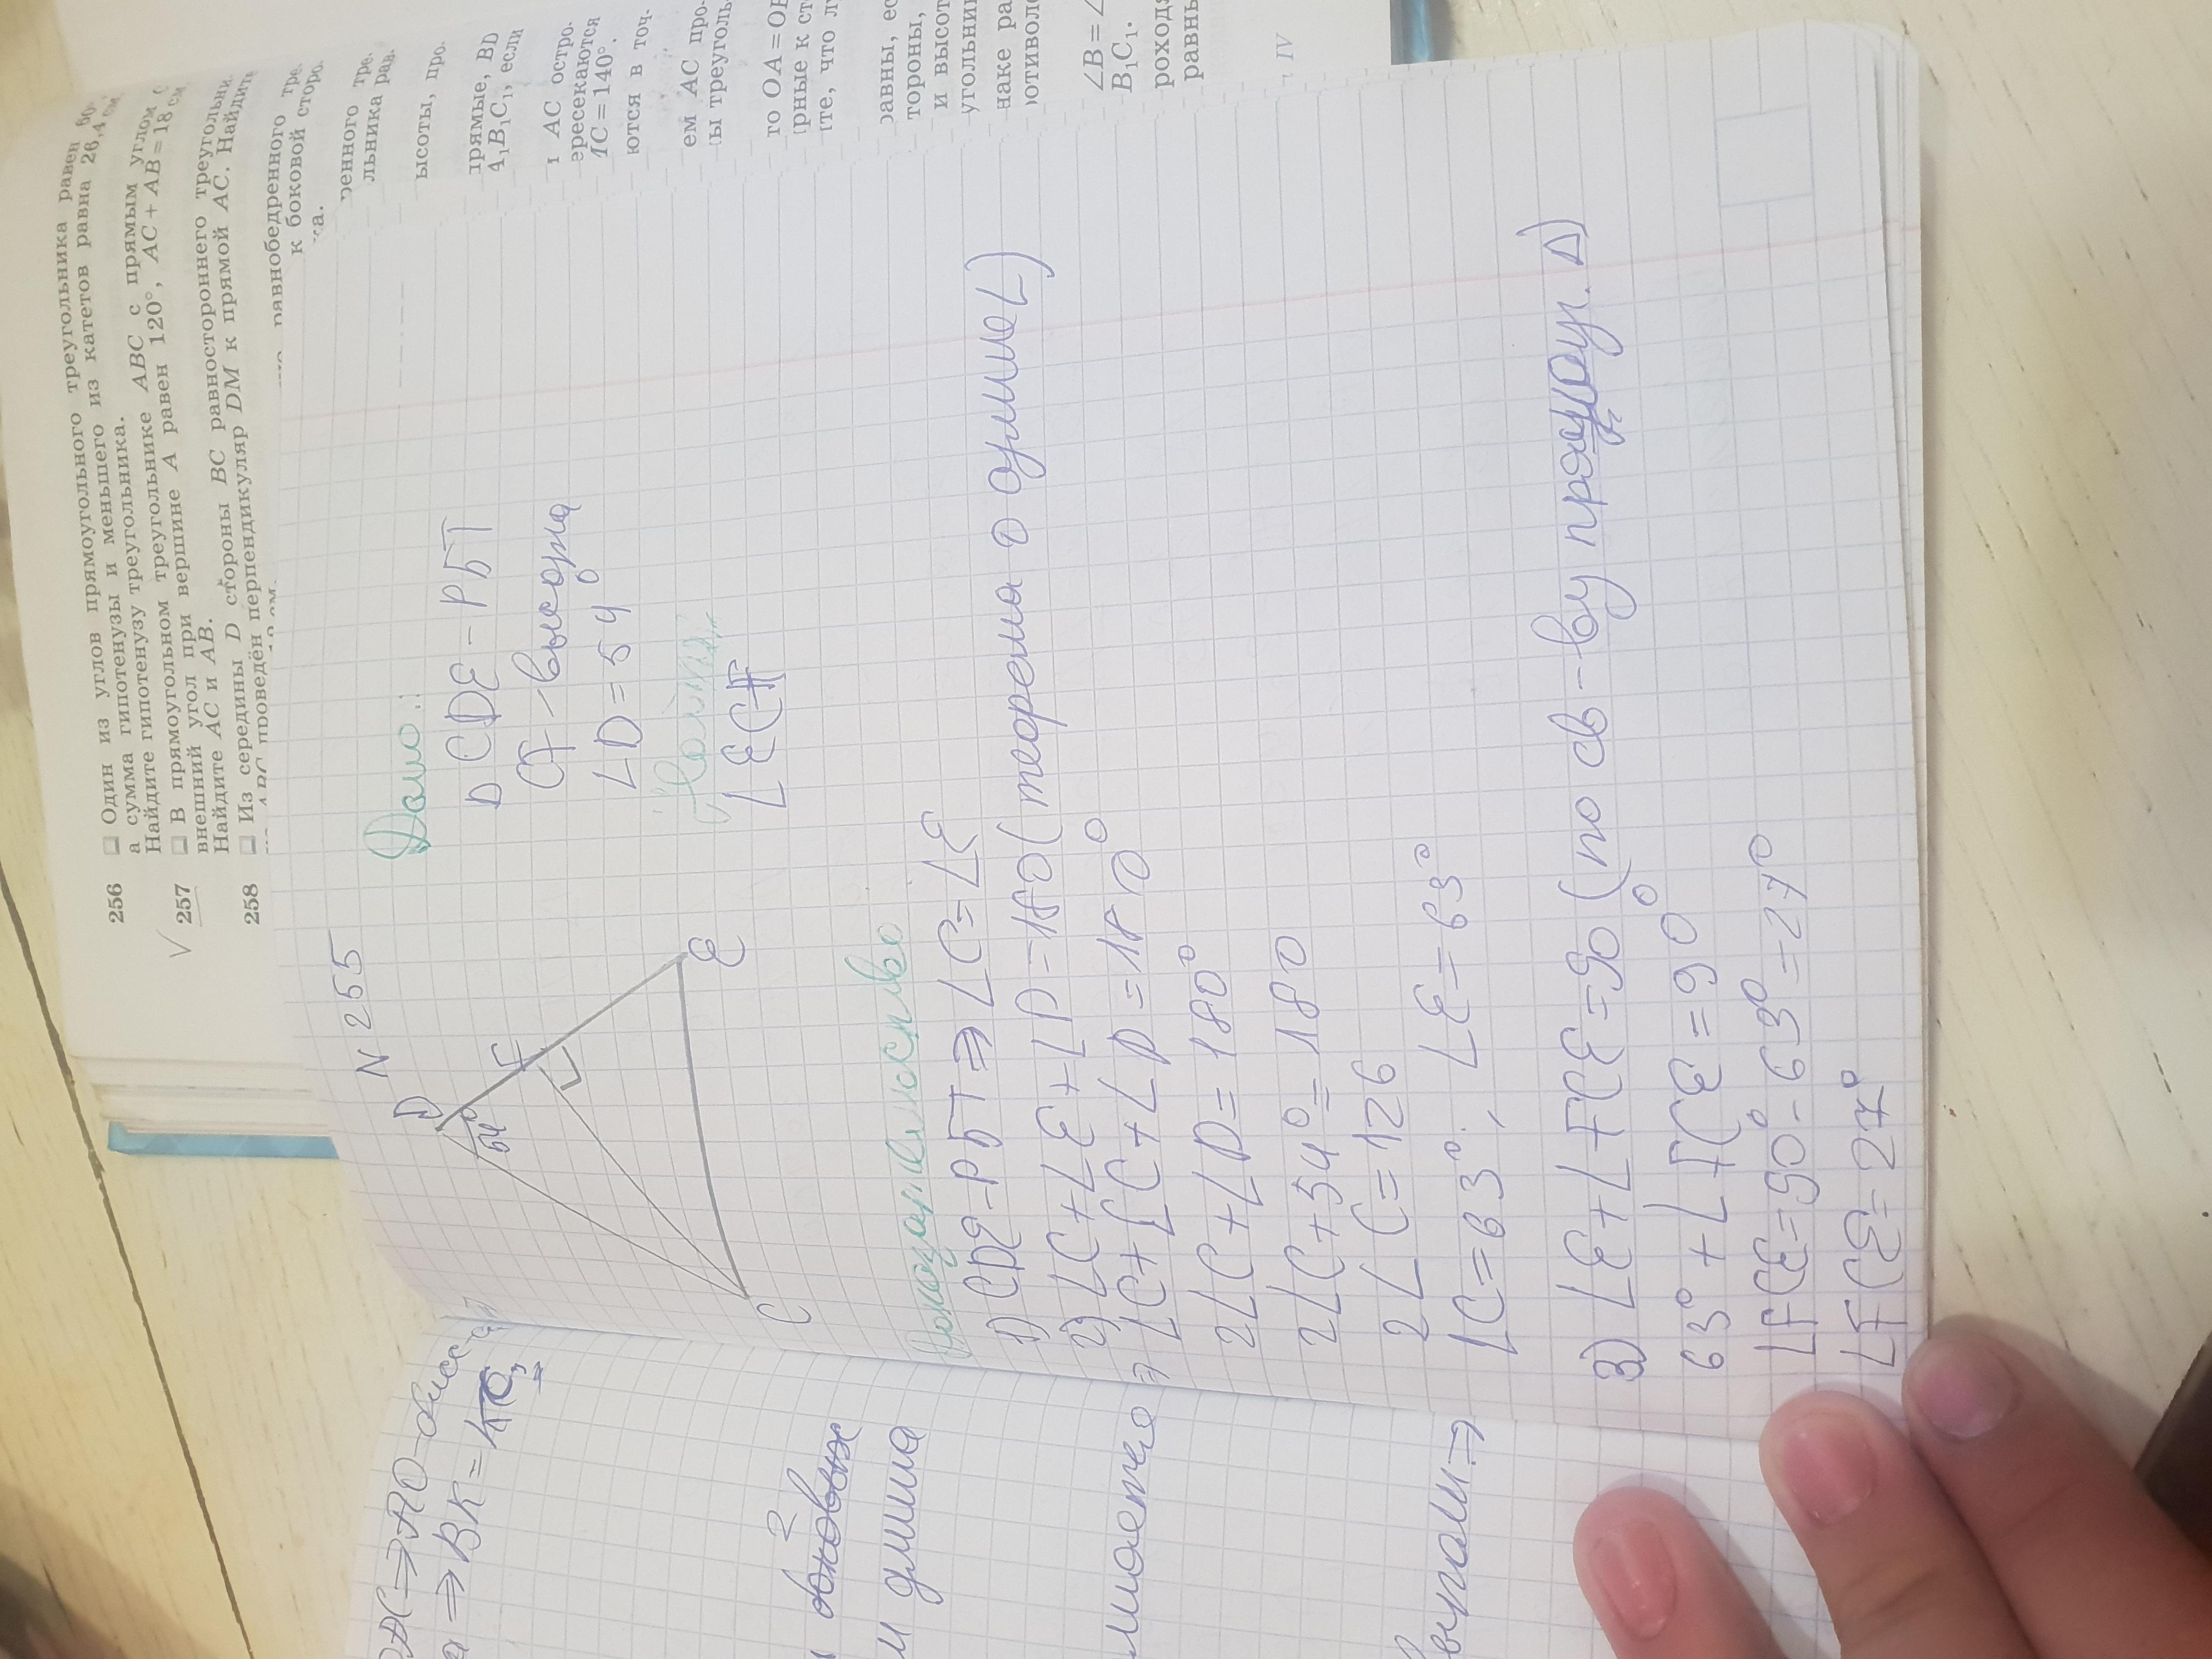 256 ❑ Один из углов прямоугольного треугольника равен 60°,
а сумма гипотенузы и меньшего из катетов равна 26,4 см.
Найдите гипотенузу треугольника.
257 ❑ В прямоугольном треугольнике ABC с прямым углом C
внешний угол при вершине A равен 120°, AC + AB = 18 см.
Найдите AC и AB.
258 ❑ Из середины D стороны BC равностороннего треугольни-
проведён перпендикуляр DM к прямой AC. Найдите
равнобедренного тре-
к боковой сторо-
ка.
ренного тре-
льника рав-
ысоты, про-
прямые, BD
A₁B₁C₁, если
AC остро-
ересекаются
1C = 140°.
ются в точ-
ем AC про-
ы треуголь-
то OA = OB
рные к ст
те, что л
равны, ес
тороны,
и высот
угольник
наке ра
отивол
∠B = ∠
B₁C₁.
роходя
равны
IV
N 255
D
54°
F
E
C
Дано:
Δ CDE - РБТ
CF - высота
∠D = 54°
Найти:
∠ECF
Доказательство
1) CDE - РБТ ⇒ ∠C = ∠E
2) ∠C + ∠E + ∠D = 180 (теорема о сумме ∠)
⇒ ∠C + ∠C + ∠D = 180°
2∠C + ∠D = 180°
2∠C + 54° = 180
2∠C = 126
∠C = 63°, ∠E = 63°
3) ∠E + ∠FCE = 90° (по св-ву прямоуг. Δ)
63° + ∠FCE = 90°
∠FCE = 90° - 63° = 27°
∠FCE = 27°
⇒ BK =
2
боковых
и длина